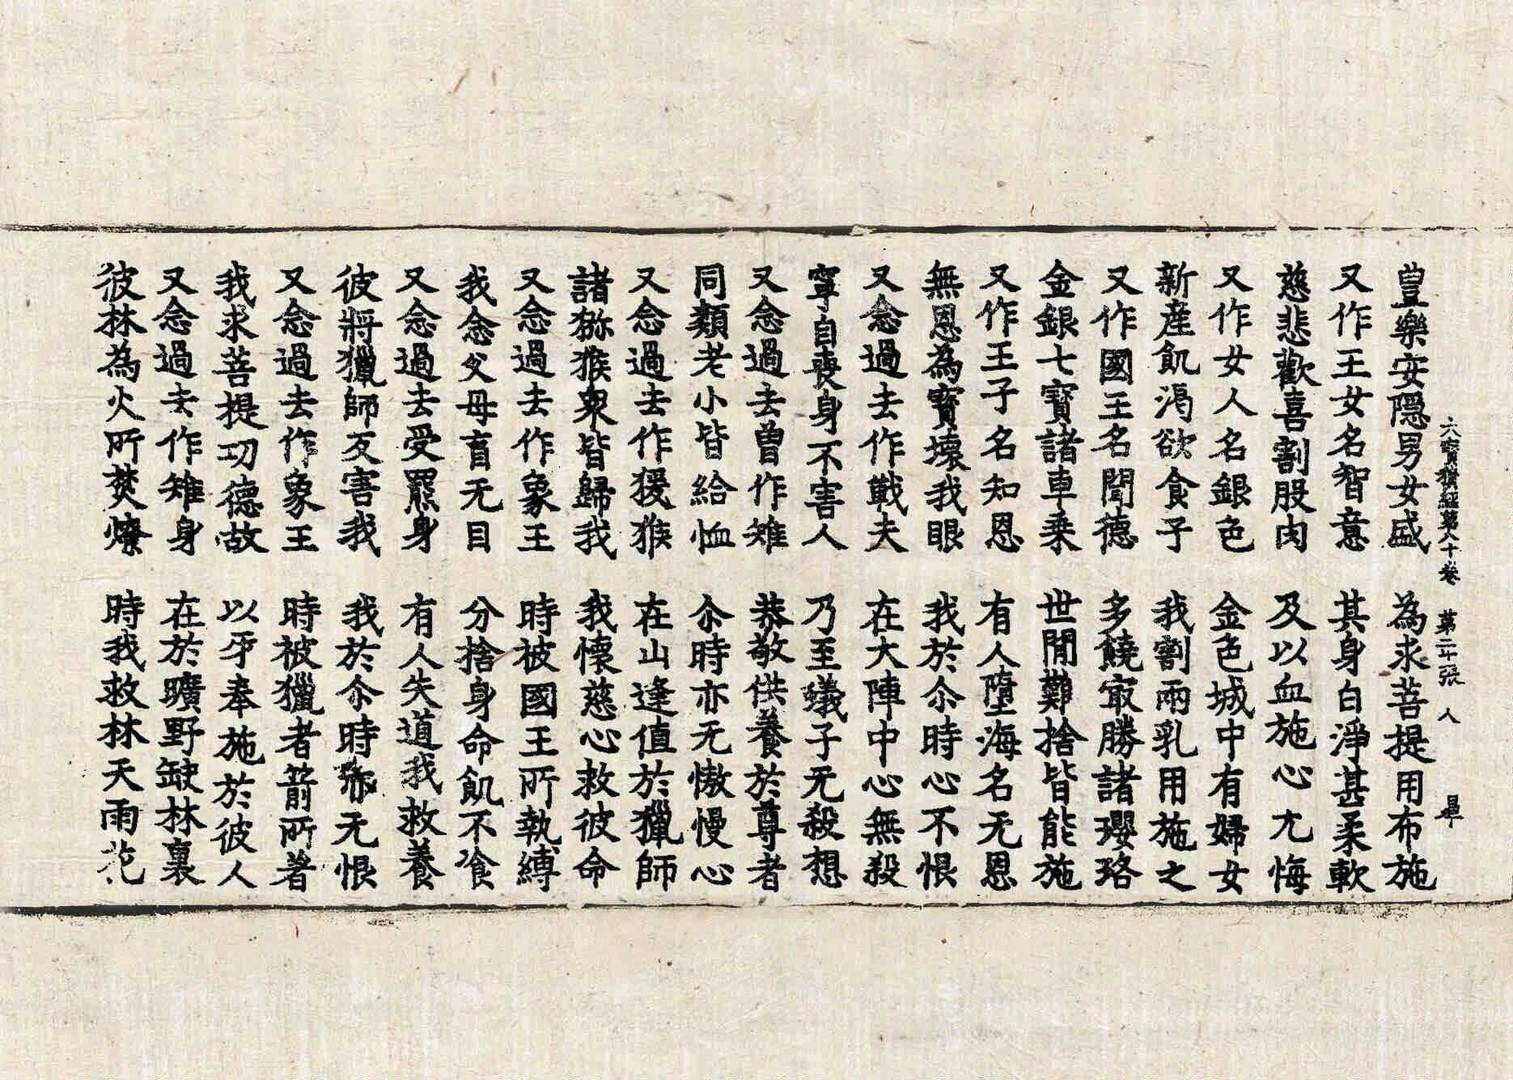 大寶積經第八十卷 第二十張 人
豊樂安隱男女盛 為求菩提用布施
又作王女名智意 其身白淨甚柔軟
慈悲歡喜割股肉 及以血施心无悔
又作女人名銀色 金色城中有婦女
新產飢渴欲食子 我割兩乳用施之
又作國王名聞德 多饒寂勝諸瓔珞
金銀七寶諸車乘 世間難捨皆能施
又作王子名知恩 有人墮海名无恩
無恩為寶壞我眼 我於尒時心不恨
又念過去作戰夫 在大陣中心無殺
寧自喪身不害人 乃至蟻子无殺想
又念過去曾作雉 恭敬供養於尊者
同類老小皆給恤 尒時亦无慠慢心
又念過去作猨猴 在山逢值於獵師
諸猕猴衆皆歸我 我懷慈心救彼命
又念過去作象王 時被國王所執縛
我念父母盲无目 分捨身命飢不飡
又念過去受羆身 有人失道我救養
彼將獵師反害我 我於尒時亦无恨
又念過去作象王 時被獵者箭所著
我求菩提功德故 以牙奉施於彼人
又念過去作雉身 在於曠野㘽林裏
彼林為火所焚燎 時我救林天雨花